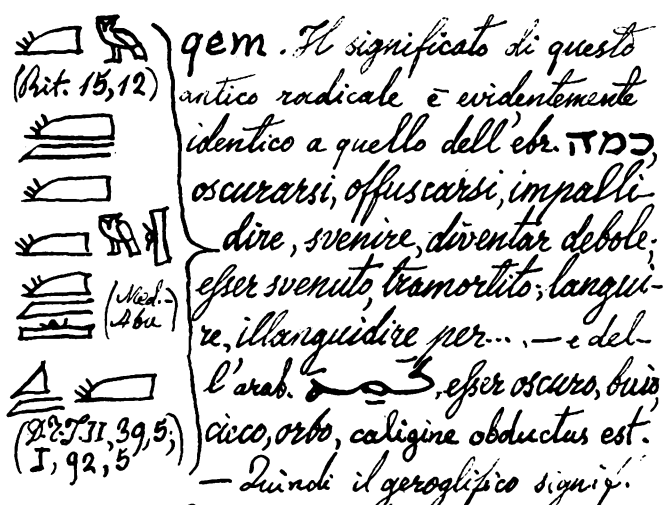 qem. Il significato di questo
(Rit. 15,12) antico radicale è evidentemente
identico a quello dell'ebr. כמה,
oscurarsi, offuscarsi, impalli-
dire, svenire, diventar debole;
(Med.-Abu) esser svenuto, tramortito; langui-
re, illanguidire per.... — e del-
l'arab. , esser oscuro, buio,
(DTJII, 39,5; I, 92, 5) cieco, orbo, caligine obductus est.
— Quindi il geroglifico signif.